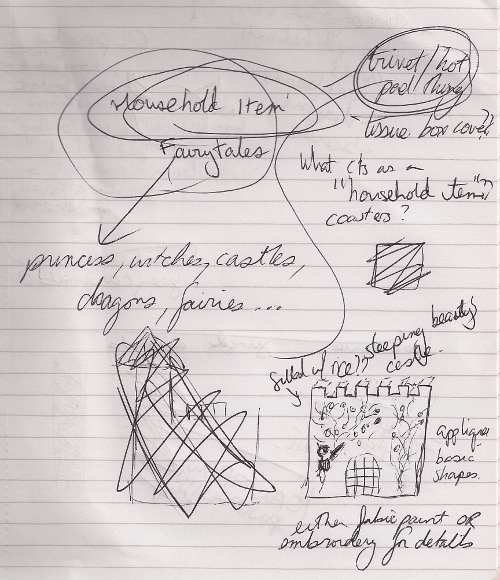 Household Item
Fairytales
trivet/hot
pad/thing
tissue box cover?
What cts as a
"household item"?
coasters?
princess, witches, castles,
dragons, fairies ...
filled w/ rice??
sleeping beauty's
castle.
applique
basic
shapes.
either fabric paint OR
embroidery for details